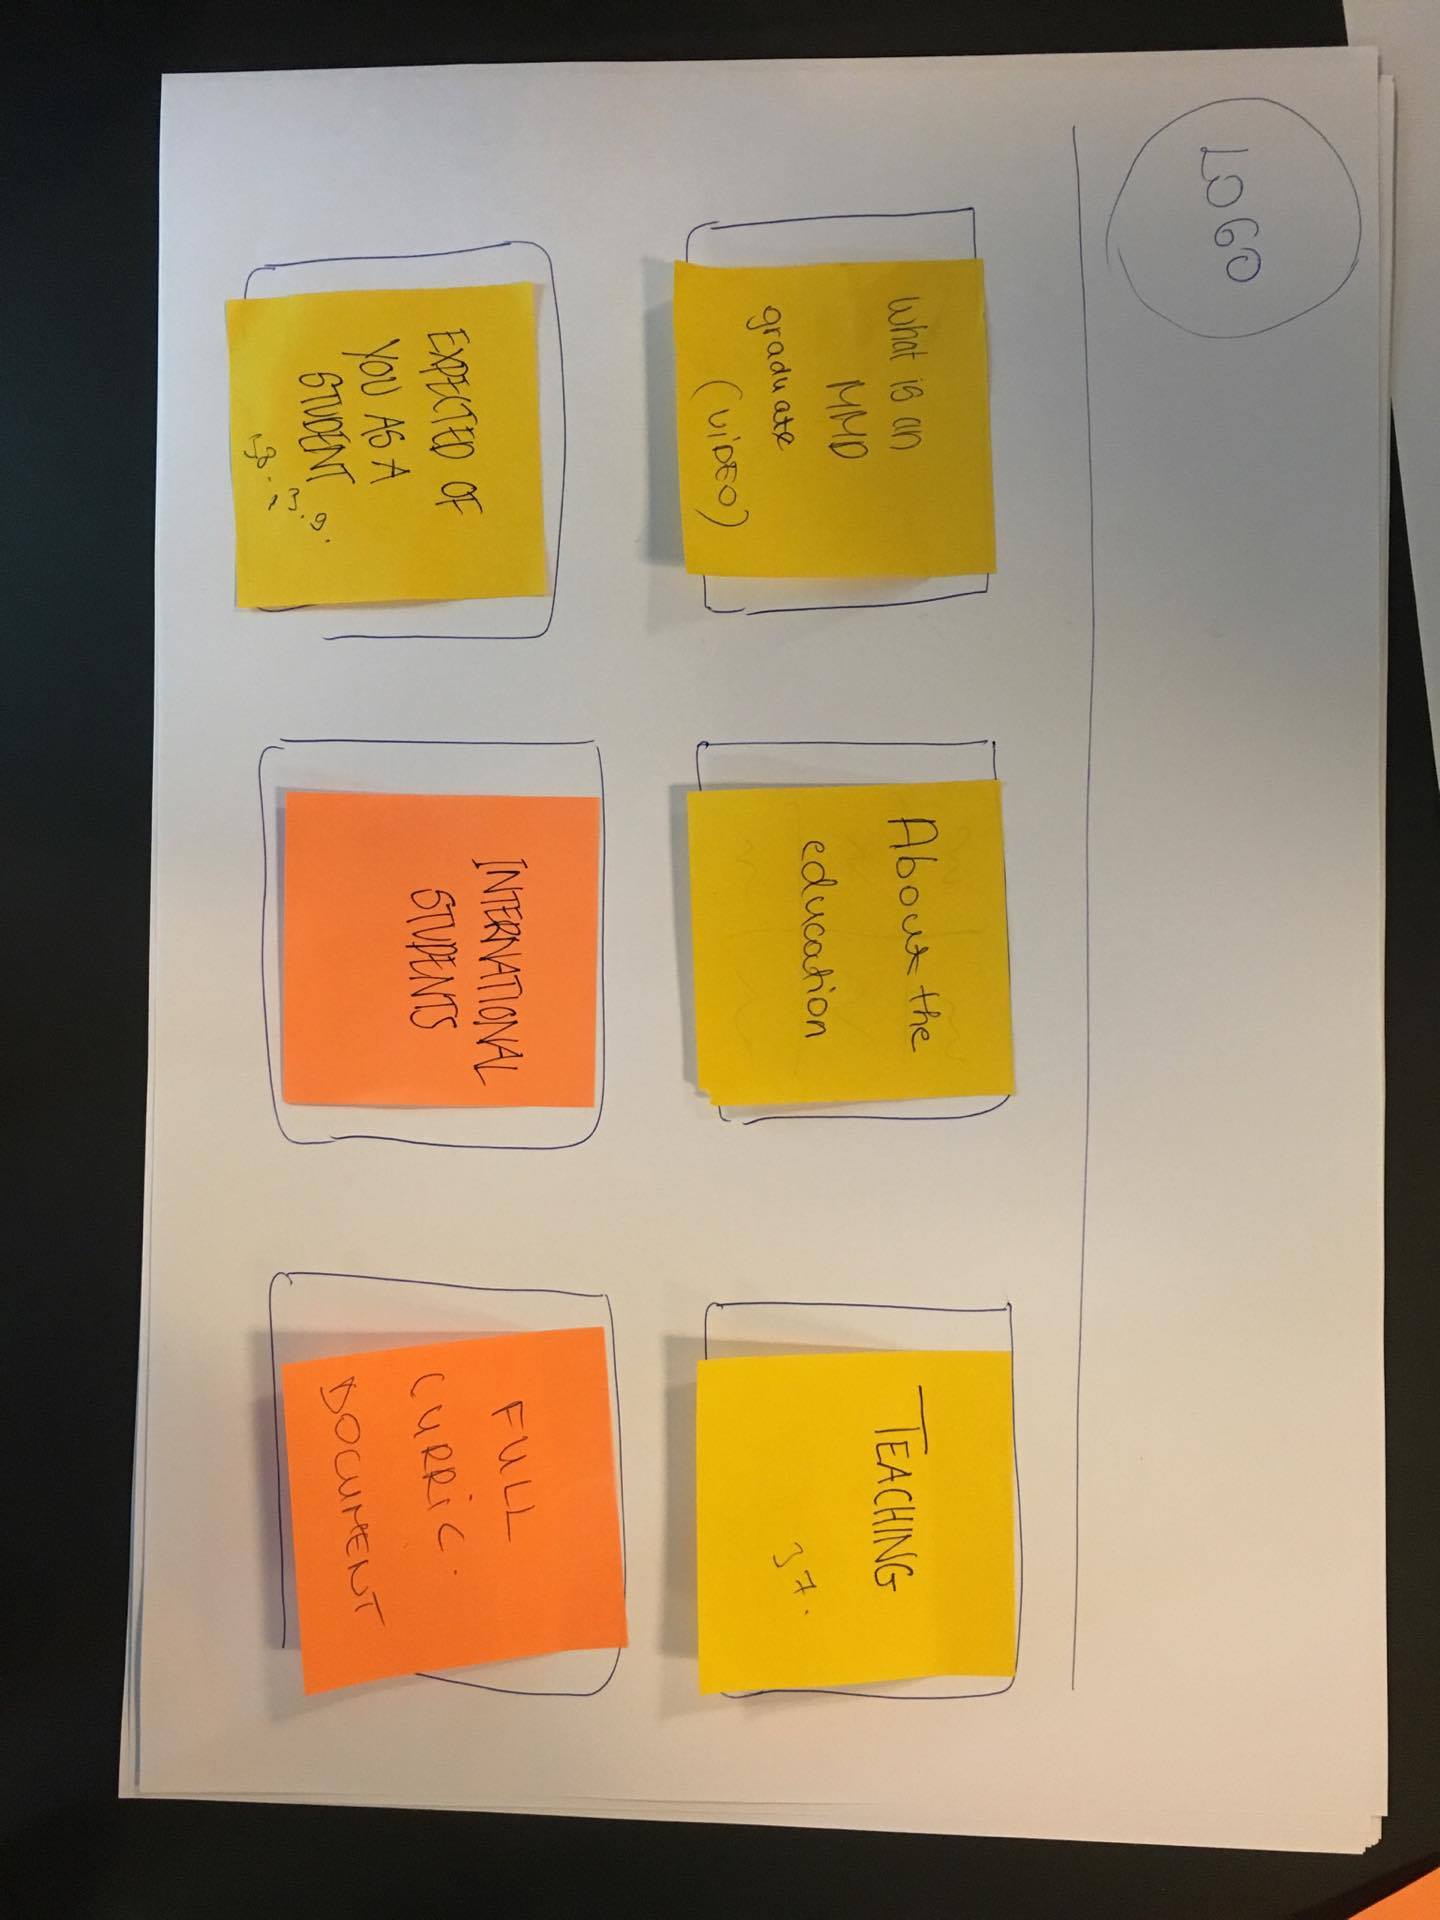 LOGO
What is an
MMD
graduate
(VIDEO)
About the
education
TEACHING
37.
EXPECTED OF
YOU AS A
STUDENT
INTERNATIONAL
STUDENTS
FULL
CURRIC.
DOCUMENT